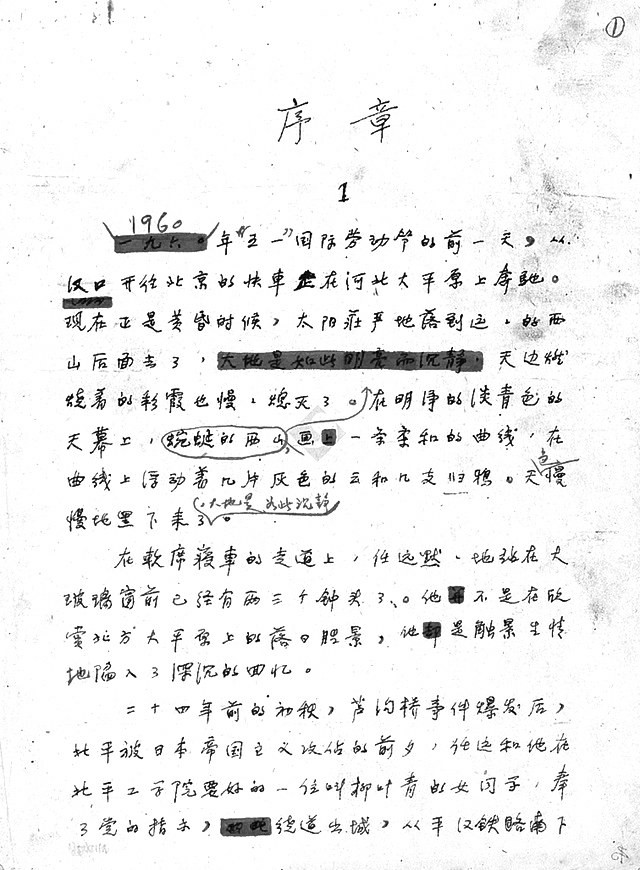 ①
序章
1
1960
一九六〇年“五一”国际劳动节的前一天，从
汉口开往北京的快車正在河北大平原上奔馳。
现在正是黄昏时候，太阳庄严地落到远々的西
山后面去了，大地是如此明亮而沉静，天边燃
烧着的彩霞也慢々熄灭了。在明净的淡青色的
天幕上，蜿蜒的西山，画上一条柔和的曲线，在
曲线上浮动着几片灰色的云和几支归鸦。天色慢
慢地黑下来了。
（大地是如此沉静
在軟席寝車的走道上，任远默々地站在大
玻璃窗前已经有两三个钟头了。他并不是在欣
赏北方大平原上的落日胜景，他却是触景生情
地陷入了深沉的回忆。
二十四年前的初秋，芦沟桥事件爆发后，
北平被日本帝国主义攻佔的前夕，任远和他在
北平工学院要好的一位叫柳叶青的女同学，奉
了党的指示，绕道出城，从平汉铁路南下